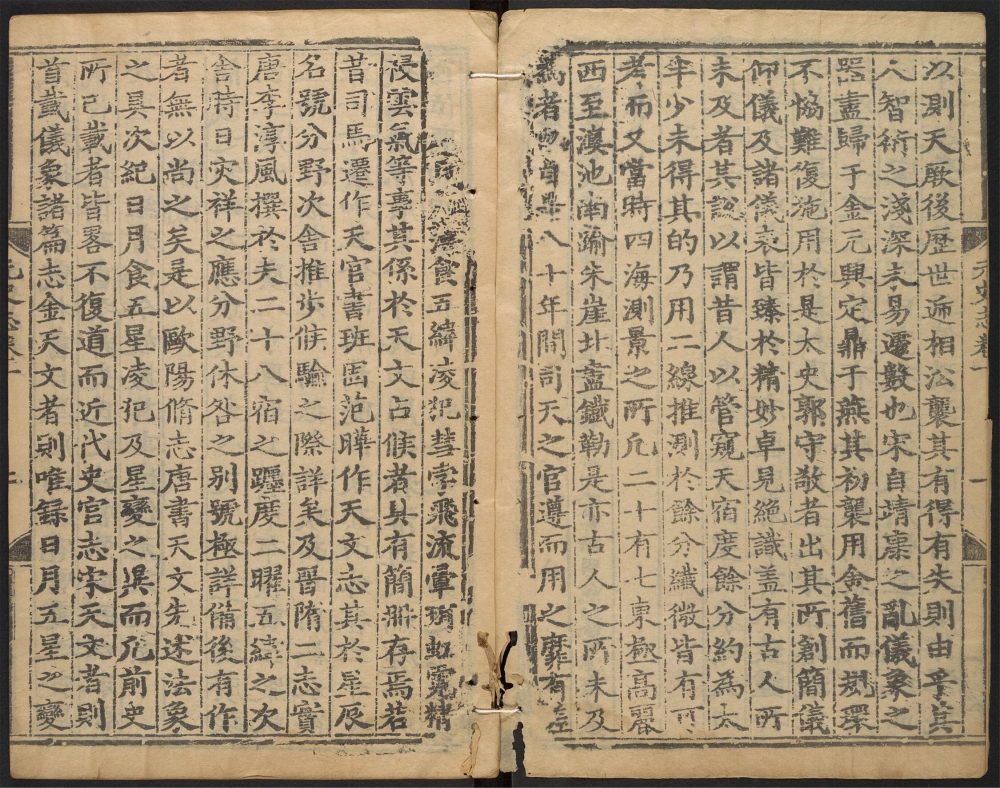 以測天厥後歷世遞相沿襲其有得有失則由乎其
人智術之淺深未易遽數也宋自靖康之亂儀象之
器盡歸于金元興定鼎于燕其初襲用金舊而規環
不恊難復施用於是太史郭守敬者出其所創簡儀
仰儀及諸儀表皆臻於精妙卓見絕識盖有古人所
未及者其說以謂昔人以管窺天宿度餘分約為太
半少未得其的乃用二線推測於餘分纖微皆有可
考而又當時四海測景之所凡二十有七東極高麗
西至滇池南踰朱崖北盡鐵勒是亦古人之所未及
為者也自是八十年間司天之官遵而用之靡有差
食五緯凌犯彗孛飛流暈珥虹霓精
祲雲氣等事其係於天文占候者具有簡冊存焉若
昔司馬遷作天官書班固范曄作天文志其於星辰
名號分野次舍推步候驗之際詳矣及晋隋二志實
唐李淳風撰於夫二十八宿之躔度二曜五緯之次
舍時日灾祥之應分野休咎之别號極詳備後有作
者無以尚之矣是以歐陽脩志唐書天文先述法象
之具次紀日月食五星凌犯及星變之異而凡前史
所已載者皆畧不復道而近代史官志宋天文者則
首載儀象諸篇志金天文者則唯録日月五星之變
元史志卷一
一